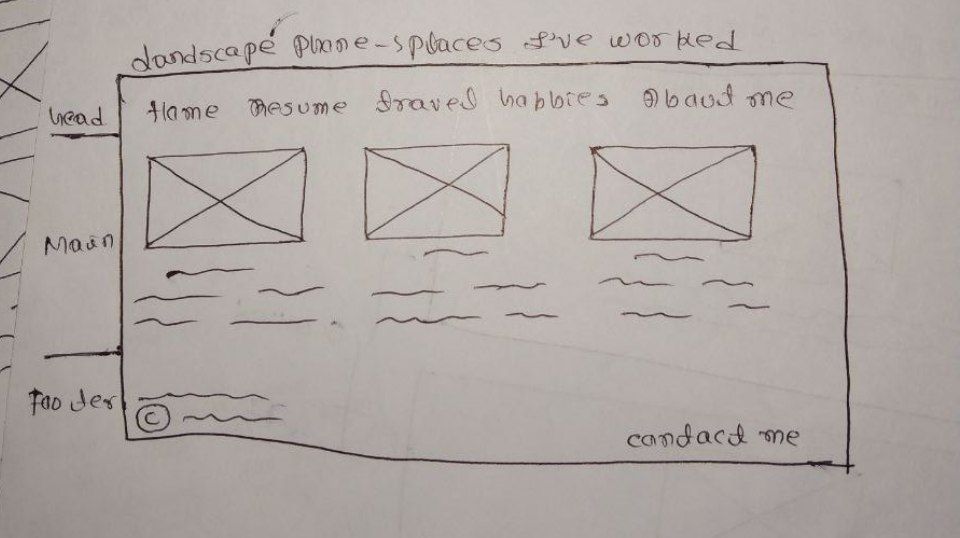 Landscape Phone-splaces I've worked
head
Home Resume Travel habbies About me
Main
Footer
©
contact me